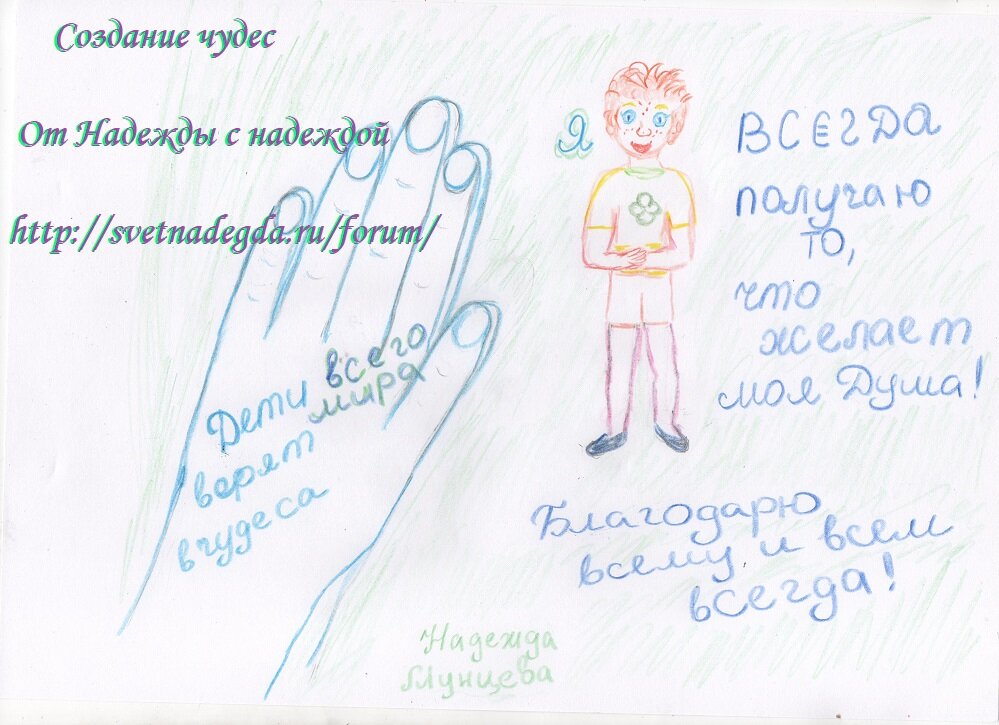 Создание чудес
От Надежды с надеждой
http://svetnadegda.ru/forum/
Дети всего
мира
верят
в чудеса
Я
ВСЕГДА
получаю
то,
что
желает
моя Душа!
Благодарю
всему и всем
всегда!
Надежда
Мунцева